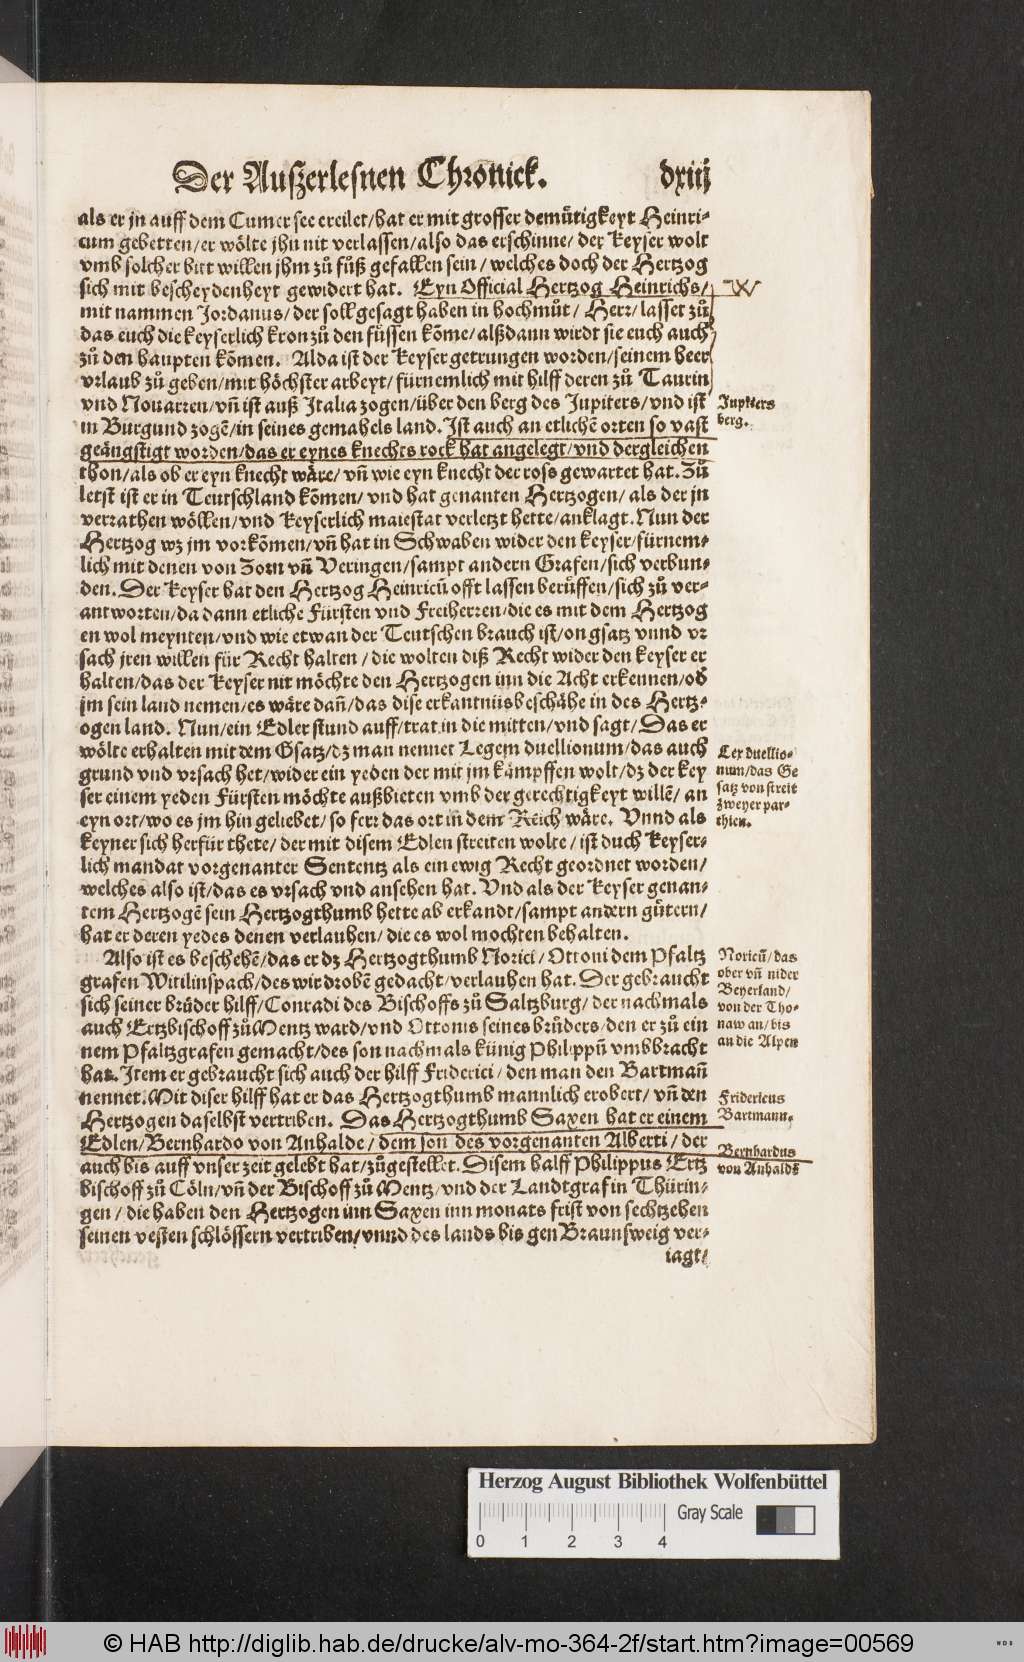 Der Außerlesnen Chronick. dxiiij
als er jn auff dem Cumer see ereilet/hat er mit grosser demuͤtigkeyt Heinri⸗
cum gebetten/er woͤlte jhn nit verlassen/also das erschinne/ der Keyser wolt
vmb solcher bitt willen jhm zuͦ fuͤß gefallen sein / welches doch der Hertzog
sich mit bescheydenheyt gewidert hat. Eyn Official Hertzog Heinrichs/
mit nammen Jordanus/ der soll gesagt haben in hochmuͦt / Herr/ lasset zuͦ/
das euch die keyserlich kron zuͦ den fuͤssen kom̃e/ alßdann wirdt sie euch auch
zuͦ den haupten kom̃en. Alda ist der Keyser getrungen worden/seinem heer
vrlaub zuͦ geben/mit hoͤchster arbeyt/ fuͤrnemlich mit hilff deren zuͦ Taurin
vnd Nouarren/ vñ ist auß Italia zogen/uͤber den berg des Jupiters/vnd ist
in Burgund zogẽ/in seines gemahels land. Ist auch an etlichẽ orten so vast
geaͤngstigt worden/das er eynes knechts rock hat angelegt/vnd dergleichen
thon/als ob er eyn knecht waͤre/ vñ wie eyn knecht der ross gewartet hat. Zuͦ
letst ist er in Teutschland kom̃en/ vnd hat genanten Hertzogen/ als der jn
verrathen woͤllen/vnd Keyserlich maiestat verletzt hette/anklagt. Nun der
Hertzog wz jm vorkom̃en/ vñ hat in Schwaben wider den keyser/fuͤrnem⸗
lich mit denen von Zorn vñ Veringen/sampt andern Grafen/sich verbun⸗
den. Der Keyser hat den Hertzog Heinricũ offt lassen beruͤffen/sich zuͦ ver⸗
antworten/da dann etliche Fuͤrsten vnd Freiherren/die es mit dem Hertzog
en wol meynten/vnd wie etwan der Teutschen brauch ist/on gsatz vnnd vr
sach jren willen fuͤr Recht halten / die wolten diß Recht wider den keyser er
halten/das der Keyser nit moͤchte den Hertzogen inn die Acht erkennen/oð
jm sein land nemen/es waͤre dañ/das dise erkantnuͤs beschaͤhe in des Hertz⸗
ogen land. Nun/ein Edler stund auff/trat in die mitten/vnd sagt/ Das er
woͤlte erhalten mit dem Gsatz/dz man nennet Legem duellionum/das auch
grund vnd vrsach het/wider ein yeden der mit jm kaͤmpffen wolt/dz der key
ser einem yeden Fuͤrsten moͤchte außbieten vmb der gerechtigkeyt willẽ/ an
eyn ort/wo es jm hin geliebet/ so ferr das ort in dem Reich waͤre. Vnnd als
keyner sich herfuͤr thete/ der mit disem Edlen streiten wolte / ist duch Keyser⸗
lich mandat vorgenanter Sententz als ein ewig Recht geordnet worden/
welches also ist/das es vrsach vnd ansehen hat. Vnd als der Keyser genan⸗
tem Hertzogẽ sein Hertzogthumb hette ab erkandt/sampt andern guͤtern/
hat er deren yedes denen verlauhen/ die es wol mochten behalten.
Also ist es beschehẽ/das er dz Hertzogthumb Norici/ Ottoni dem Pfaltz
grafen Witilinspach/des wir drobẽ gedacht/verlauhen hat. Der gebraucht
sich seiner bruͤder hilff/Conradi des Bischoffs zuͦ Saltzburg/ der nachmals
auch Ertzbischoff zuͦ Mentz ward/vnd Ottonis seines bruͤders/den er zuͦ ein
nem Pfaltzgrafen gemacht/des son nachmals kuͤnig Philippũ vmbbracht
hat. Item er gebraucht sich auch der hilff Friderici/ den man den Bartmañ
nennet. Mit diser hilff hat er das Hertzogthumb mannlich erobert/ vñ den
Hertzogen daselbst vertriben. Das Hertzogthumb Saxen hat er einem
Edlen/Bernhardo von Anhalde / dem son des vorgenanten Alberti/ der
auch bis auff vnser zeit gelebt hat/zuͦgestellet. Disem halff Philippus Ertz
bischoff zuͦ Coͤln/vñ der Bischoff zuͦ Mentz/vnd der Landtgraf in Thuͤrin⸗
gen / die haben den Hertzogen inn Saxen inn monats frist von sechtzehen
seinen vesten schloͤssern vertriben/ vnnd des lands bis gen Braunsweig ver⸗
iagt/
W
Jupiters
berg.
Lex duellio⸗
num/das Ge
satz von streit
zweyer par⸗
thien.
Noricũ/das
ober vñ nider
Beyerland/
von der Tho⸗
naw an/ bis
an die Alpen
Fridericus
Bartmann.
Bernhardus
von Anhalde
Herzog August Bibliothek Wolfenbüttel
0 1 2 3 4
Gray Scale
© HAB http://diglib.hab.de/drucke/alv-mo-364-2f/start.htm?image=00569